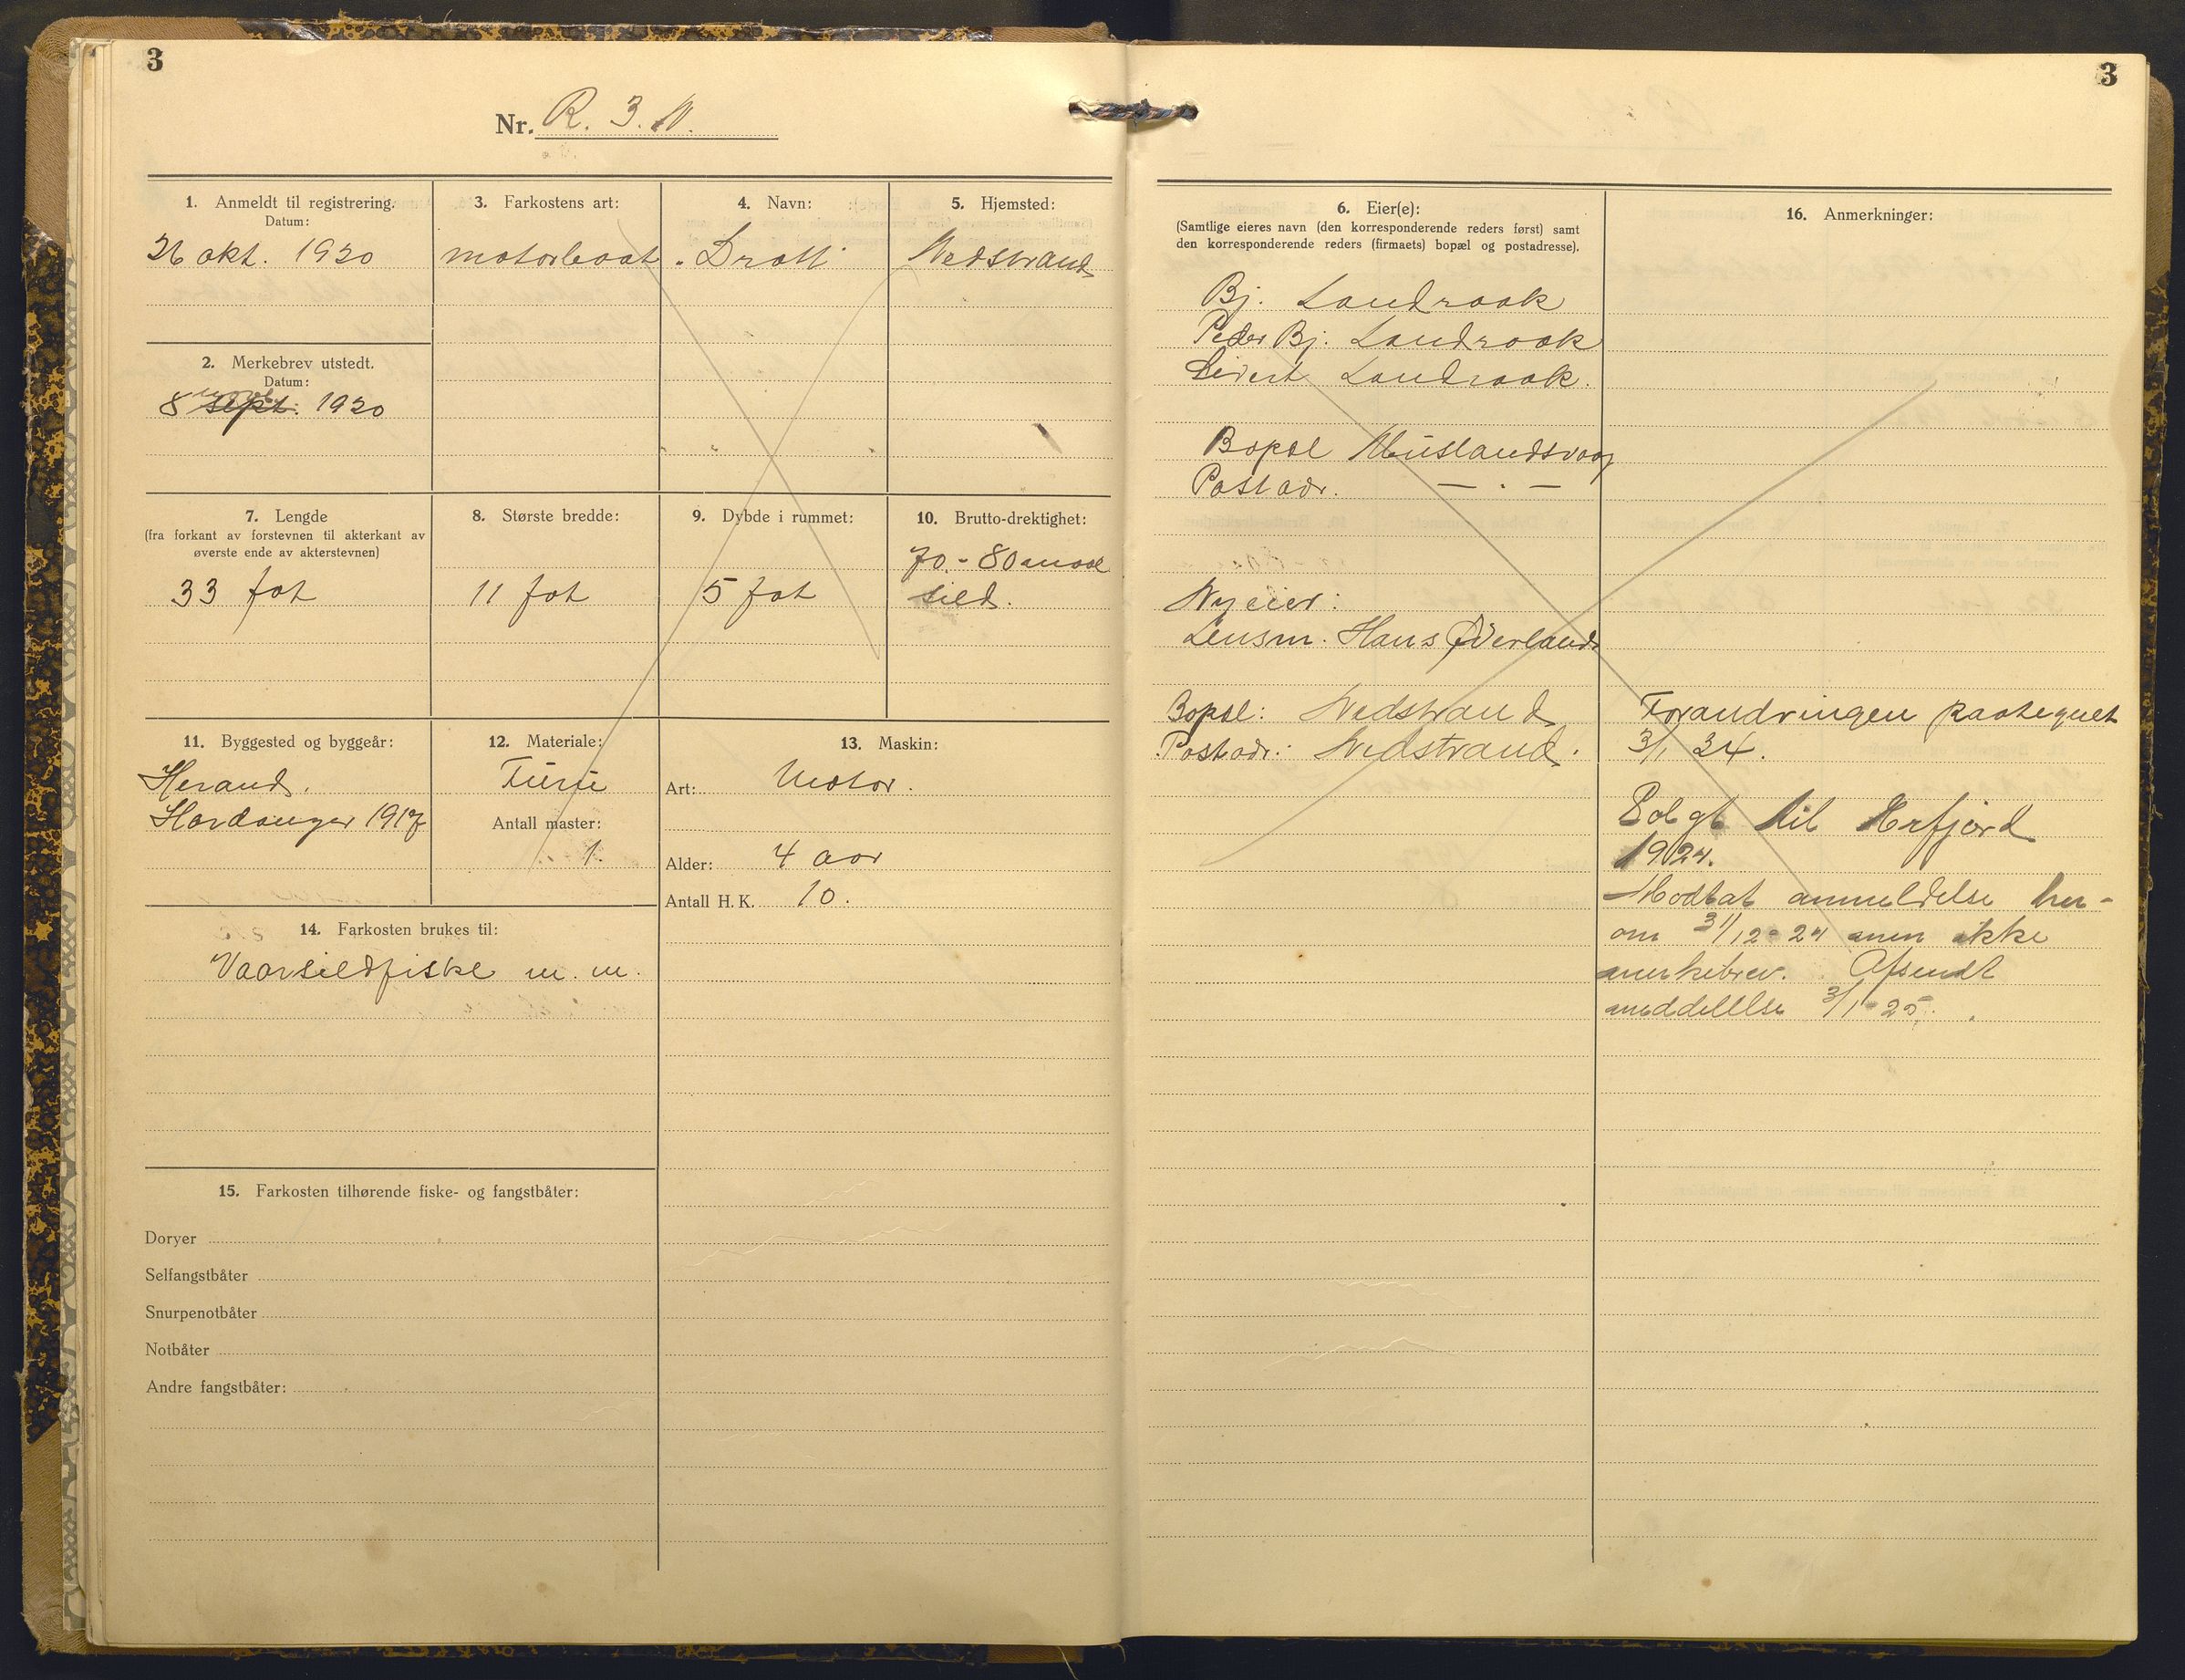 3
Nr. R. 3. N.
1. Anmeldt til registrering.
Datum:
26 okt. 1920
2. Merkebrev utstedt.
Datum:
8 sept. 1920
3. Farkostens art:
motorbaat
4. Navn:
"Drott"
5. Hjemsted:
Nedstrand
7. Lengde
(fra forkant av forstevnen til akterkant av
øverste ende av akterstevnen)
33 fot
8. Største bredde:
11 fot
9. Dybde i rummet:
5 fot
10. Brutto-drektighet:
70.-80 maal
sild.
11. Byggested og byggeår:
Herand.
Hardanger 1917
12. Materiale:
Furu
Antall master:
1.
13. Maskin:
Art: Motor.
Alder: 4 aar
Antall H. K. 10.
14. Farkosten brukes til:
Vaarsildfiske m. m.
15. Farkosten tilhørende fiske- og fangstbåter:
Doryer
Selfangstbåter
Snurpenotbåter
Notbåter
Andre fangstbåter:
3
6. Eier(e):
(Samtlige eieres navn (den korresponderende reders først) samt
den korresponderende reders (firmaets) bopæl og postadresse).
Bj. Landraak
Peder Bj. Landraak
Sivert Landraak.
Bopæl Auslandsvaag
Postadr. — . —
Ny eier:
Lensm. Hans Øverland
Bopæl: Nedstrand
Postadr.: Nedstrand.
16. Anmerkninger:
Forandringen paategnet
3/1 24.
Solgt til Erfjord
1924.
Modtat anmeldelse her-
om 31/12-24 men ikke
merkebrev. Afsendt
meddelelse 3/1-25.